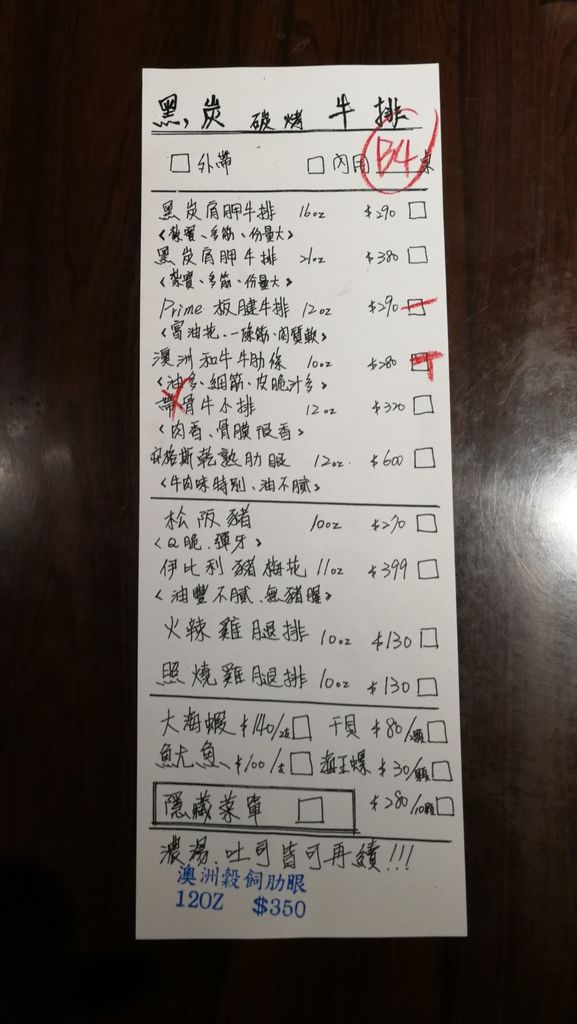 黑炭 碳烤 牛排
□ 外帶 □ 內用 B4 桌
黑炭肩胛牛排 16oz $290 □
<紮實、多筋、份量大>
黑炭肩胛牛排 21oz $380 □
<紮實、多筋、份量大>
Prime 板腱牛排 12oz $290 □
<富油花、一條筋、肉質軟>
澳洲和牛牛肋條 10oz $280 □
<油多、細筋、皮脆汁多>
帶骨牛小排 12oz $320 □
<肉香、骨膜很香>
安格斯乾熟肋眼 12oz $600 □
<牛肉味特別、油不膩>
松阪豬 10oz $270 □
<Q脆、彈牙>
伊比利豬梅花 11oz $399 □
<油豐不膩、無豬腥>
火辣雞腿排 10oz $130 □
照燒雞腿排 10oz $130 □
大海蝦 $140/2支 □ 干貝 $80/2顆 □
魷魚 $100/支 □ 海王螺 $30/顆 □
隱藏菜單 □ $280/10顆 □
濃湯、吐司皆可再續!!!
澳洲穀飼肋眼
12OZ $350